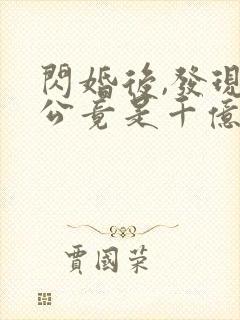 閃婚後,發現
公竟是千億
賈國榮